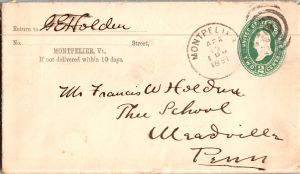 Return to G E Holden
No. Street,
MONTPELIER, Vt.
If not delivered within 10 days.
MONTPELIER
1891
UNITED
TWO 2 CENTS
Mr Francis W Holden
Theo School
Meadville
Penn